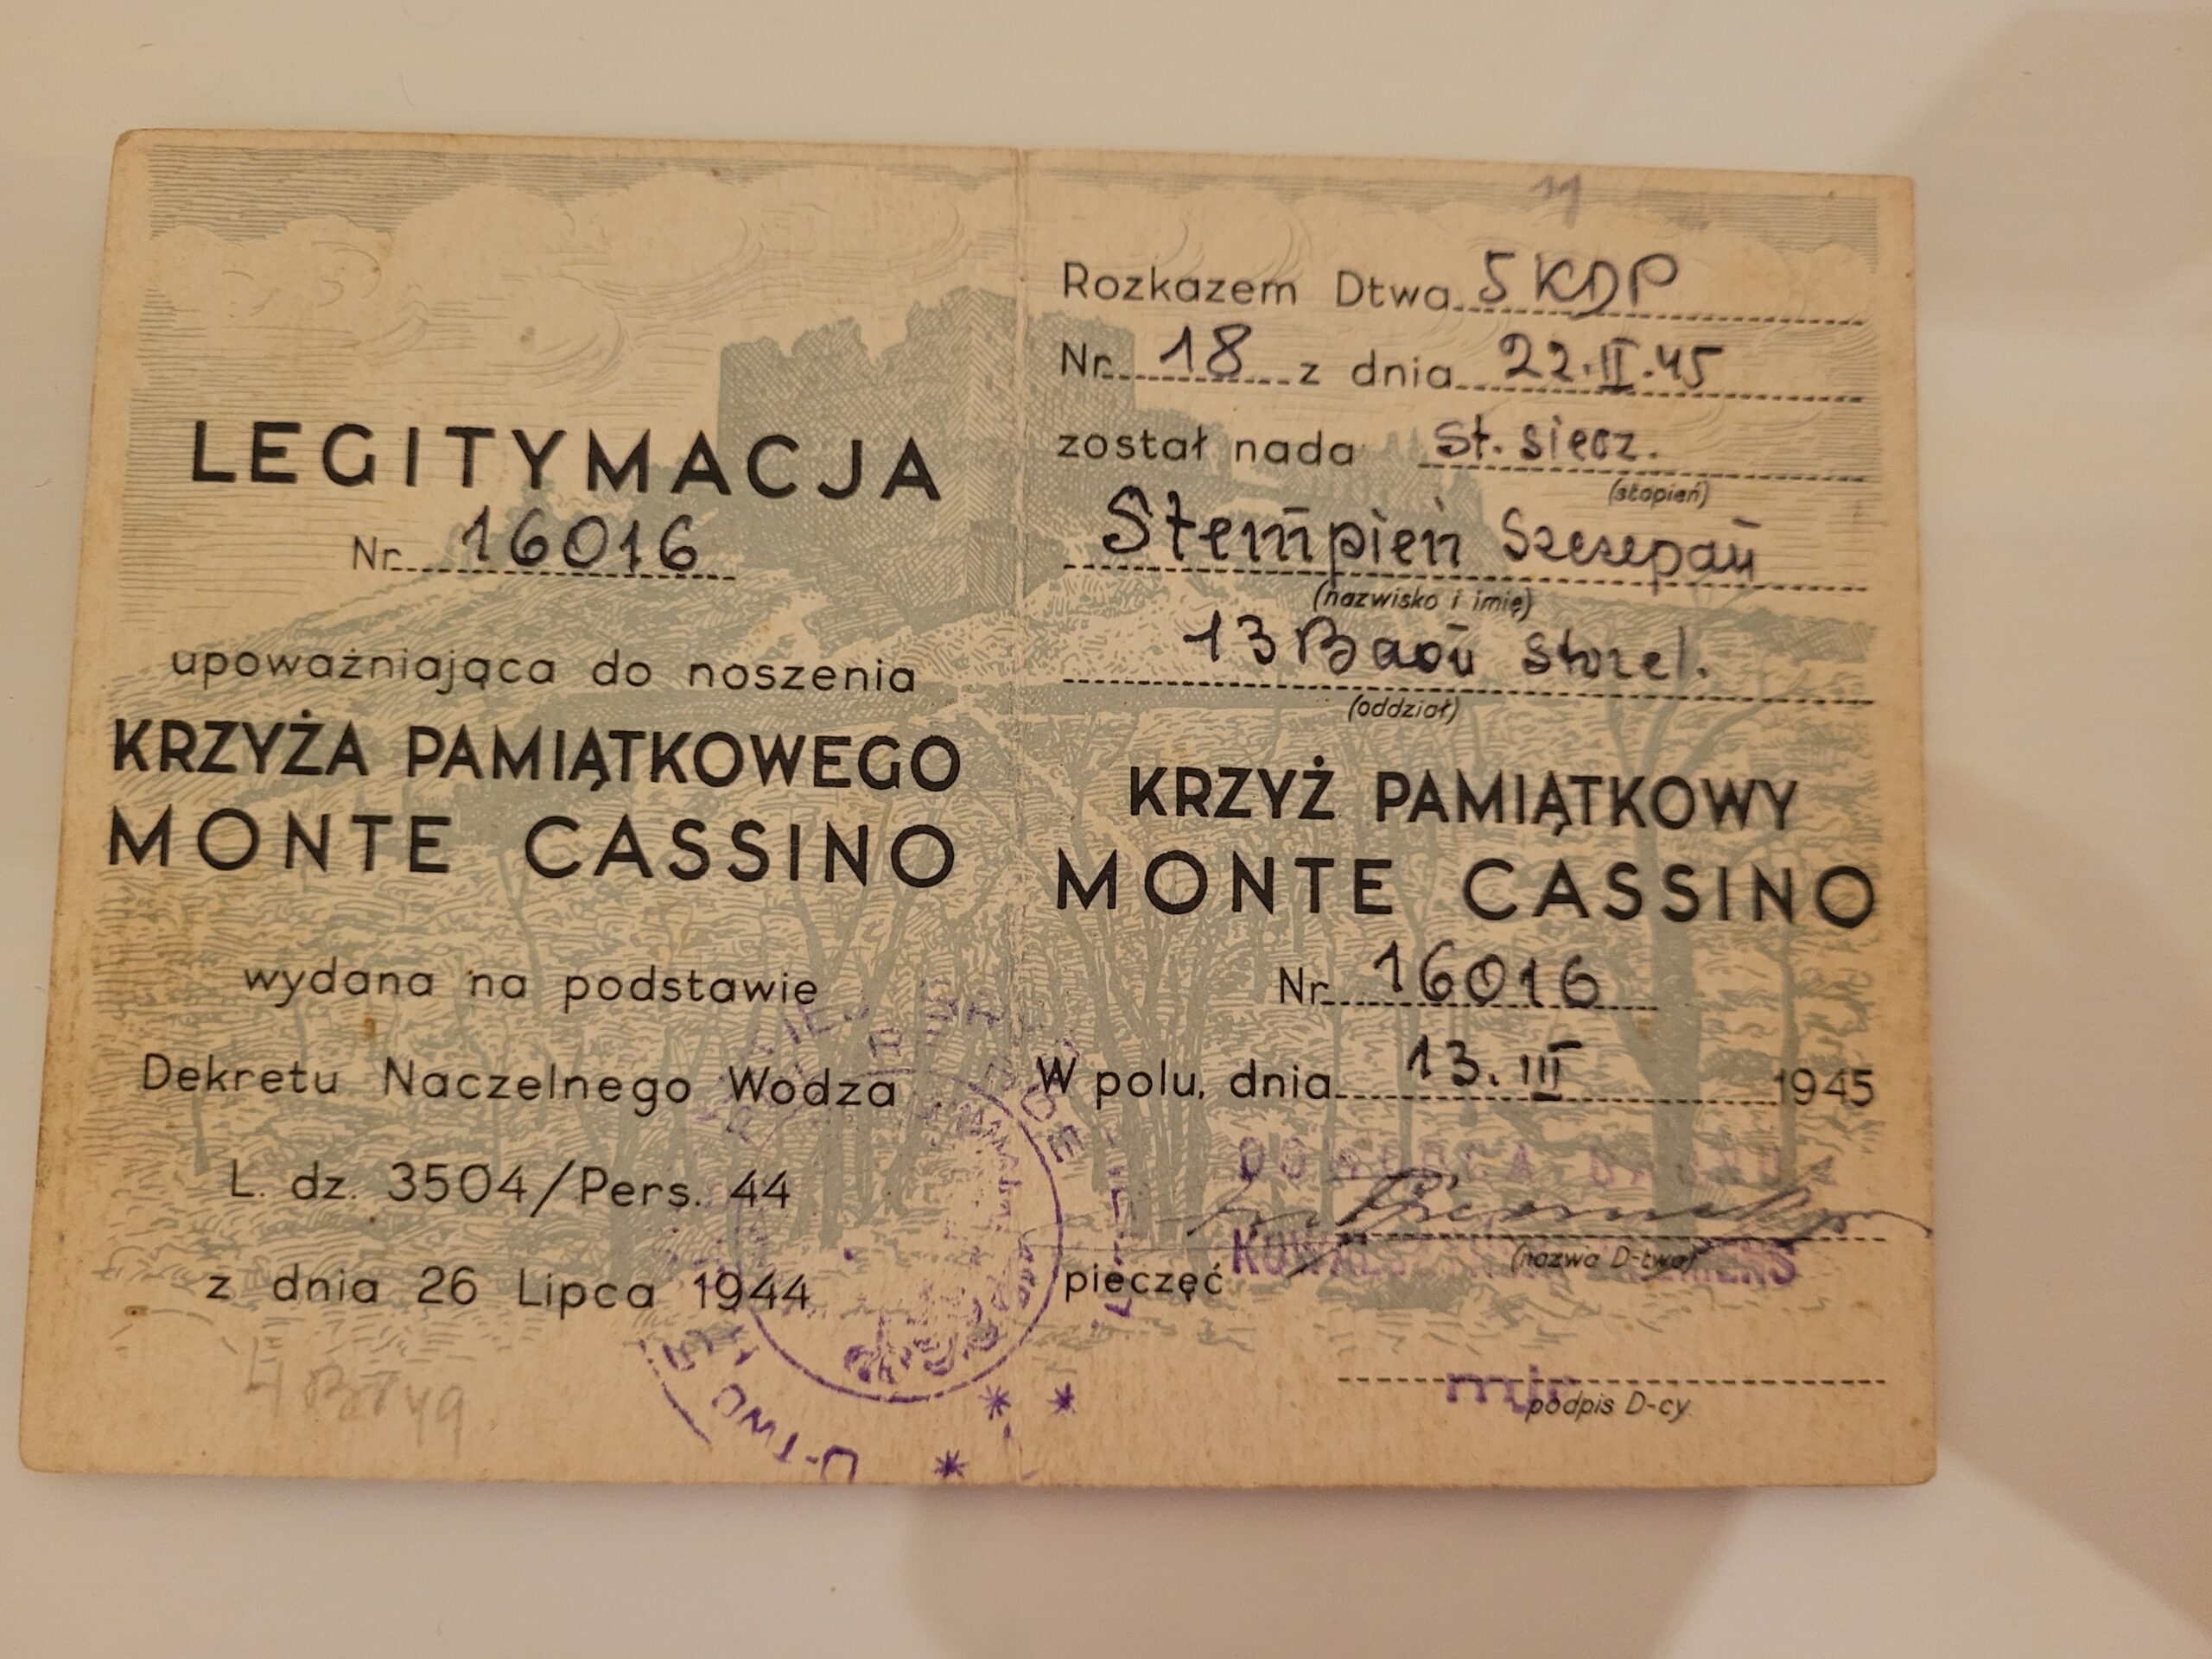 LEGITYMACJA
Nr. 16016
upoważniająca do noszenia
KRZYŻA PAMIĄTKOWEGO
MONTE CASSINO
wydana na podstawie
Dekretu Naczelnego Wodza
L. dz. 3504/Pers. 44
z dnia 26 Lipca 1944
Rozkazem Dtwa 5 KDP
Nr. 18 z dnia 22.II.45
został nada st. sierz.
(stopień)
Stempień Szczepan
(nazwisko i imię)
13 Baon Strzel.
(oddział)
KRZYŻ PAMIĄTKOWY
MONTE CASSINO
Nr. 16016
W polu, dnia 13. III 1945
DOWÓDCA BAONU
(nazwa D-twa)
pieczęć
mjr
podpis D-cy
D-TWO